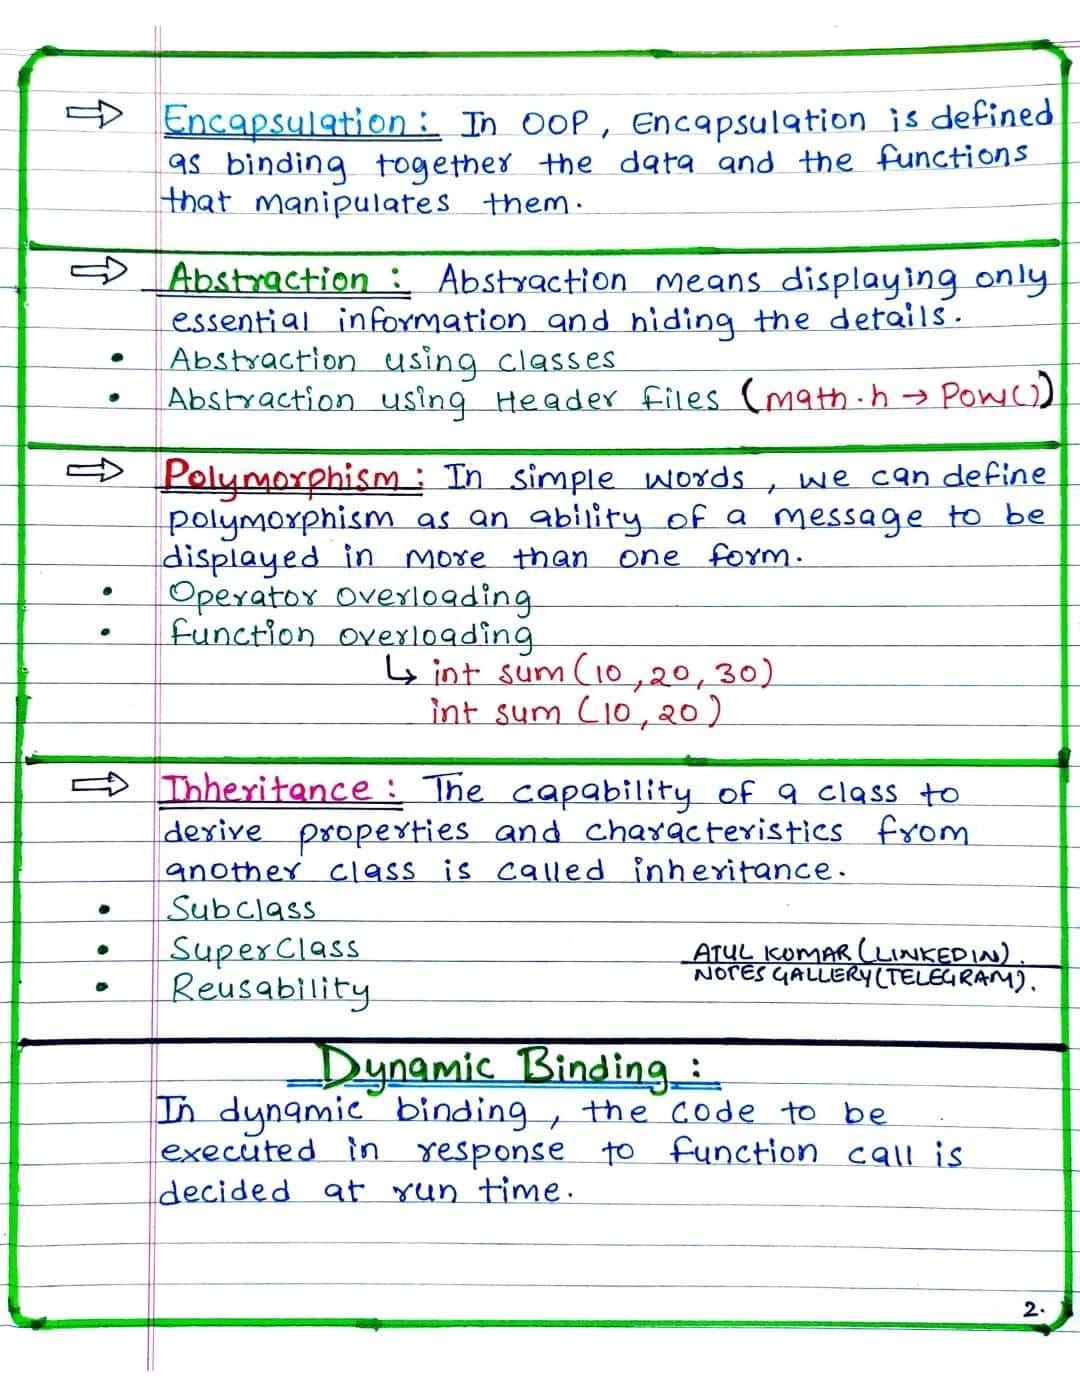 ⇒ Encapsulation : In OOP, Encapsulation is defined
as binding together the data and the functions
that manipulates them.
⇒ Abstraction : Abstraction means displaying only
essential information and hiding the details.
• Abstraction using classes
• Abstraction using Header files (math.h → Pow())
⇒ Polymorphism : In simple words, we can define
polymorphism as an ability of a message to be
displayed in more than one form.
• Operator overloading
• function overloading
↳ int sum (10, 20, 30)
int sum (10, 20)
⇒ Inheritance : The capability of a class to
derive properties and characteristics from
another class is called inheritance.
• Subclass
• SuperClass
• Reusability
ATUL KUMAR (LINKEDIN).
NOTES GALLERY (TELEGRAM).
Dynamic Binding :
In dynamic binding, the code to be
executed in response to function call is
decided at run time.
2.